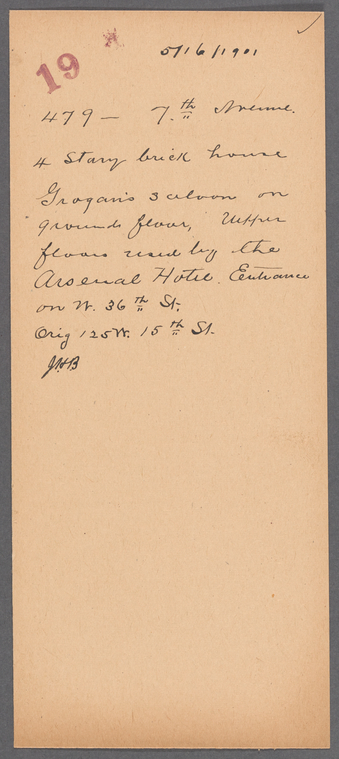 19
5/16/1901
479 — 7.th Avenue.
4 Story brick house
Grogan's Saloon on
grounds floor, Upper
floors used by the
Arsenal Hotel. Entrance
on W. 36th St.
Orig 125 W. 15th St.
JHB